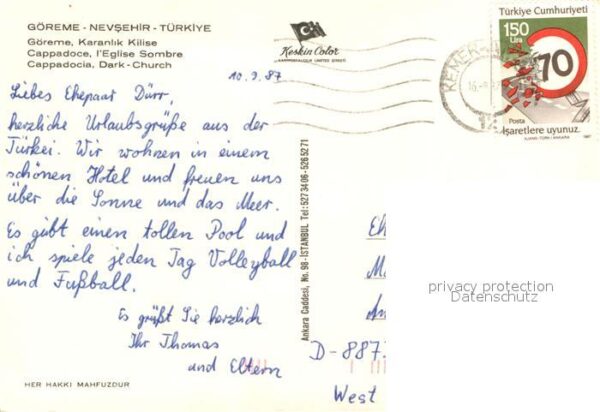 GÖREME - NEVŞEHİR - TÜRKİYE
Göreme, Karanlık Kilise
Cappadoce, l'Eglise Sombre
Cappadocia, Dark - Church
Keskin Color
Türkiye Cumhuriyeti
150
lira
70
Posta
İşaretlere uyunuz.
1987
KEMER
10.9.87
Liebes Ehepaar Dürr,
herzliche Urlaubsgrüße aus der
Türkei. Wir wohnen in einem
schönen Hotel und freuen uns
über die Sonne und das Meer.
Es gibt einen tollen Pool und
ich spiele jeden Tag Volleyball
und Fußball.
Es grüßt Sie herzlich
Ihr Thomas
und Eltern
HER HAKKI MAHFUZDUR
Ankara Caddesi, No. 98 - İSTANBUL Tel: 527 34 06 - 526 52 71
D-887
West
privacy protection
Datenschutz